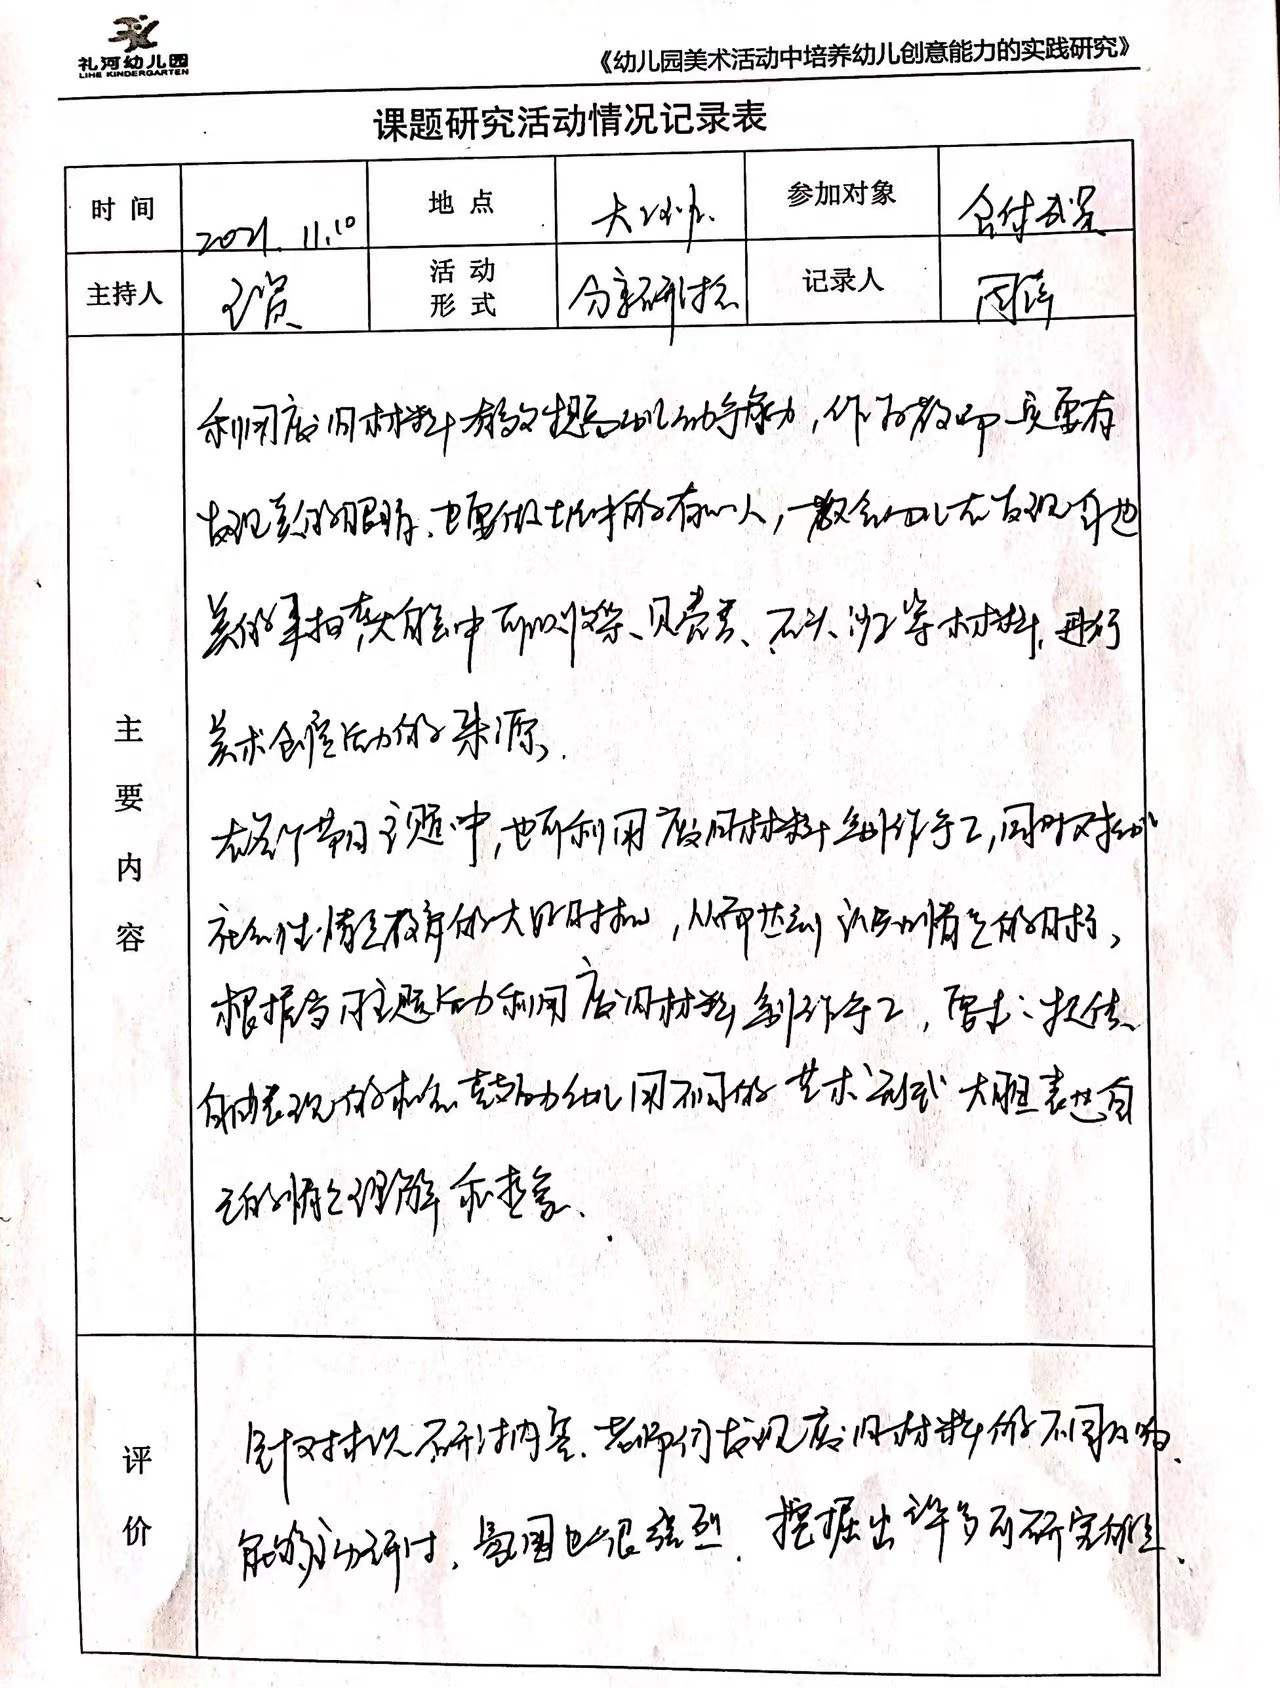 礼河幼儿园
LIHE KINDERGARTEN
《幼儿园美术活动中培养幼儿创意能力的实践研究》
课题研究活动情况记录表
时间 2021.11.10 地点 参加对象 成员
主持人 活动形式 分享研讨 记录人 周萍
主要内容
利用废旧材料有效提高幼儿动手能力，作为教师要有
发现美的眼睛、也要做生活中的有心人，教会幼儿去发现身边
美的事 大自然中可以收集、贝壳、石头、沙子等材料，进行
美术创造活动的来源、
节日主题中，也可利用废旧材料制作手工，同时对幼儿
社会性情感教育的大好时机，从而达到认知情感的目标、
根据当月主题活动利用废旧材料制作手工，要求：提供
自由表现的机会鼓励幼儿用不同的艺术形式大胆表达自
己的情感理解和想象、
评价
针对本次研讨内容、老师们发现废旧材料的不同
能够主动研讨，氛围也很强烈、挖掘出许多可研究